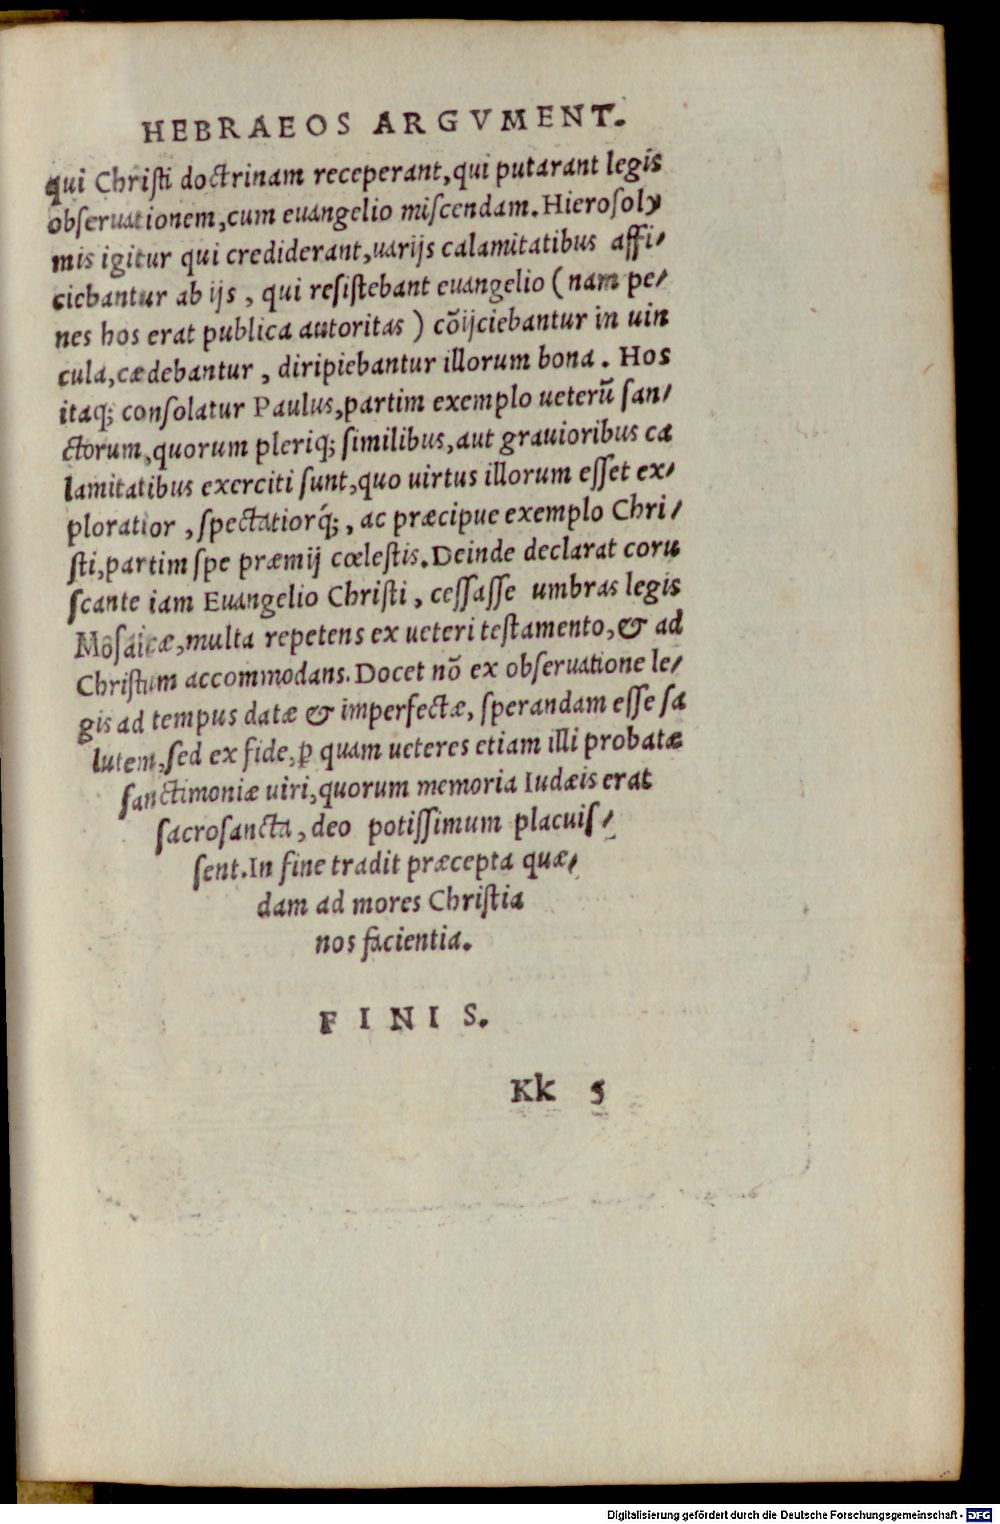 HEBRAEOS ARGVMENT.
qui Chriſti doctrinam receperant,qui putarant legis
obſeruationem,cum euangelio miſcendam.Hieroſoly
mis igitur qui crediderant,uarijs calamitatibus affi/
ciebantur ab ijs , qui reſiſtebant euangelio ( nam pe/
nes hos erat publica autoritas ) cōijciebantur in uin
cula,cædebantur , diripiebantur illorum bona . Hos
itaq; conſolatur Paulus,partim exemplo ueterū ſan/
ctorum,quorum pleriq; ſimilibus,aut grauioribus ca
lamitatibus exerciti ſunt,quo uirtus illorum eſſet ex/
ploratior , ſpectatiorq́; , ac præcipue exemplo Chri/
ſti,partim ſpe præmij cœleſtis.Deinde declarat coru
ſcante iam Euangelio Chriſti , ceſſaſſe umbras legis
Moſaicæ,multa repetens ex ueteri teſtamento,& ad
Chriſtum accommodans.Docet nō ex obſeruatione le/
gis ad tempus datæ & imperfectæ, ſperandam eſſe ſa
lutem,ſed ex fide,ꝑ quam ueteres etiam illi probatæ
ſanctimoniæ uiri,quorum memoria Iudæis erat
ſacroſancta , deo potiſſimum placuiſ/
ſent.In fine tradit præcepta quæ/
dam ad mores Chriſtia
nos facientia.
FINIS.
Kk 5
Digitalisierung gefördert durch die Deutsche Forschungsgemeinschaft - DFG